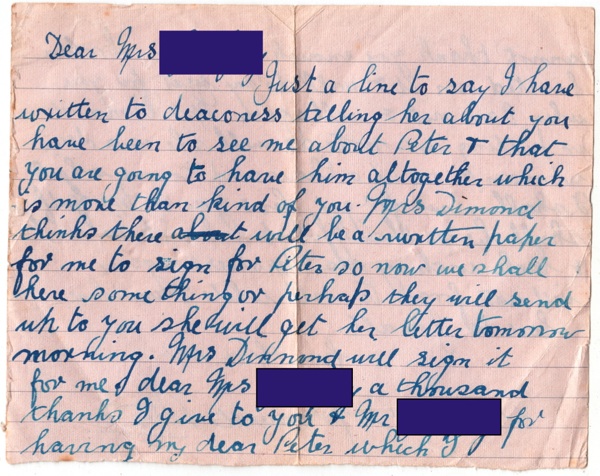 Dear Mrs
Just a line to say I have
written to deaconess telling her about you
have been to see me about Peter & that
you are going to have him altogether which
is more than kind of you. Mrs Dimond
thinks there about will be a written paper
for me to sign for Peter so now we shall
here something or perhaps they will send
uh to you she will get her letter tomorrow
morning. Mrs Dimond will sign it
for me, dear Mrs a thousand
thanks I give to you & Mr for
having my dear Peter which I